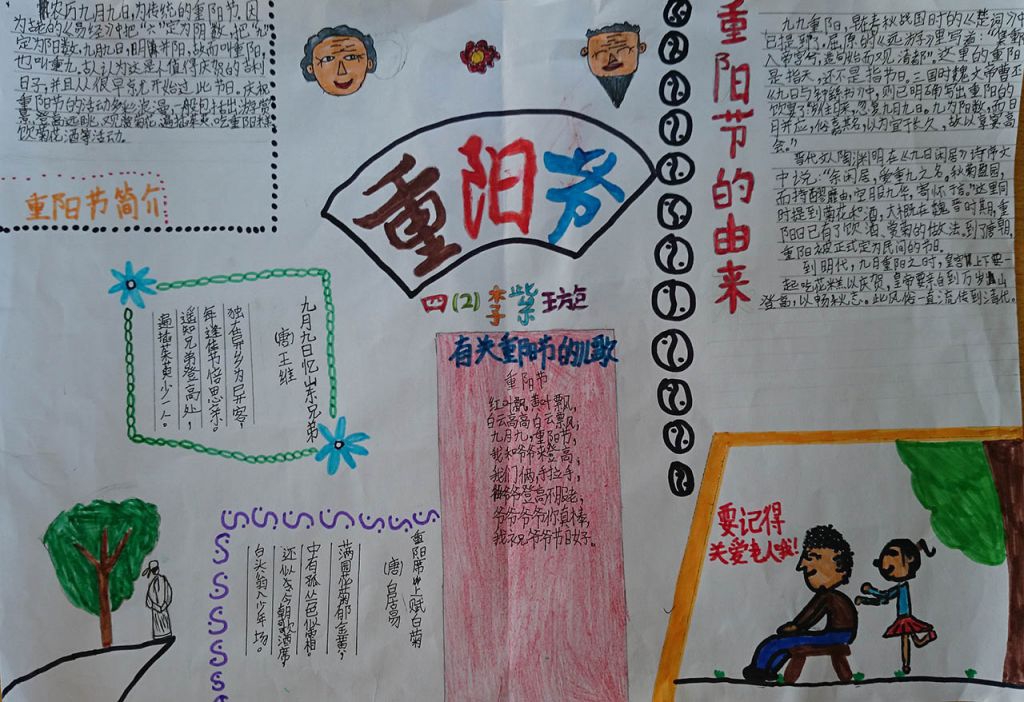 农历九月九日,为传统的重阳节。因
为《易经》中把“六”定为阴数,把“九”
定为阳数,九月九日,
也叫重九。
重阳节的活动
重阳节简介
重阳节
四(2)李紫
九月九日忆山东兄弟
(唐)王维
独在异乡为异客,
每逢佳节倍思亲。
遥知兄弟登高处,
遍插茱萸少一人。
重阳席上赋白菊
(唐)白居易
满园花菊郁金黄,
中有孤丛色似霜。
还似今朝歌酒席,
白头翁入少年场。
有关重阳节的儿歌
重阳节
红叶飘,黄叶飘,
白云高高白云飘,
九月九,重阳节,
我和爷爷来登高,
我们俩,手拉手,
爷爷登高不服老,
爷爷爷爷你真棒,
我祝爷爷节日好。
重阳节的由来
九九重阳,早在春秋战国时的《楚词》中
已提到。屈原的《远游》里写道:
这里的重阳
是指天,还不是指节日。三国时魏文帝曹丕
《九日与钟繇书》中,则已明确写出重阳的
饮宴了:“岁往月来,忽复九月九日。九为阳数,而日
月并应,俗嘉其名,以为宜于长久,故以享宴高
会。”
晋代文人陶渊明在《九日闲居》诗序文
中说:“余闲居,爱重九之名。秋菊盈园,
而持醪靡由,空服九华,寄怀于言”。这里同
时提到菊花和酒。大概在魏晋时期,重
阳日已有了饮酒、赏菊的做法。到了唐朝,
重阳被正式定为民间的节日。
到明代,九月重阳之时,皇宫上下要一
起吃花糕以庆贺,皇帝要亲自到万岁山
登高,以畅秋志。此风俗一直流传到清代。
要记得
关爱老人哦!